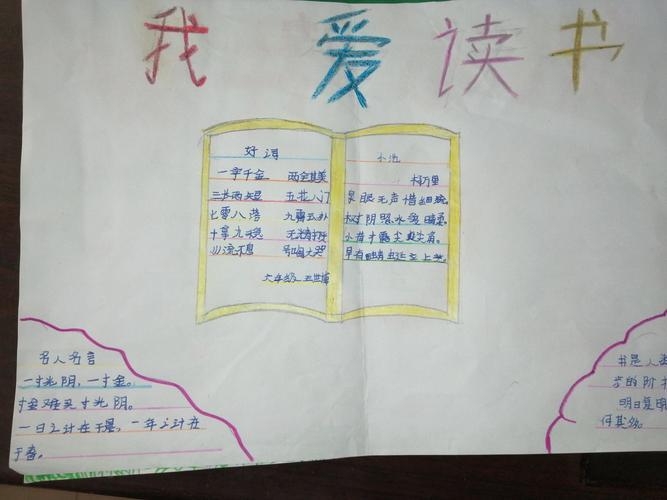 我爱读书
好词
一字千金 两全其美
三长两短 五花八门
七零八落 九霄云外
十拿九稳 无精打
川流不息 号啕大哭
六年级
小池
杨万里
泉眼无声惜细流。
树阴照水爱晴柔。
小荷才露尖尖角。
早有蜻蜓立上头。
名人名言
一寸光阴，一寸金。
寸金难买寸光阴。
一日之计在于晨，一年之计在
于春。
书是人类
步的阶
明日复明
何其多。